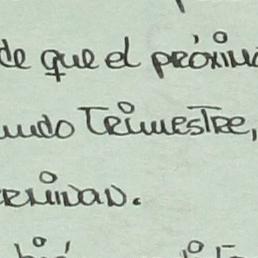 de que el próxim
undo Trimestre,
erminan.